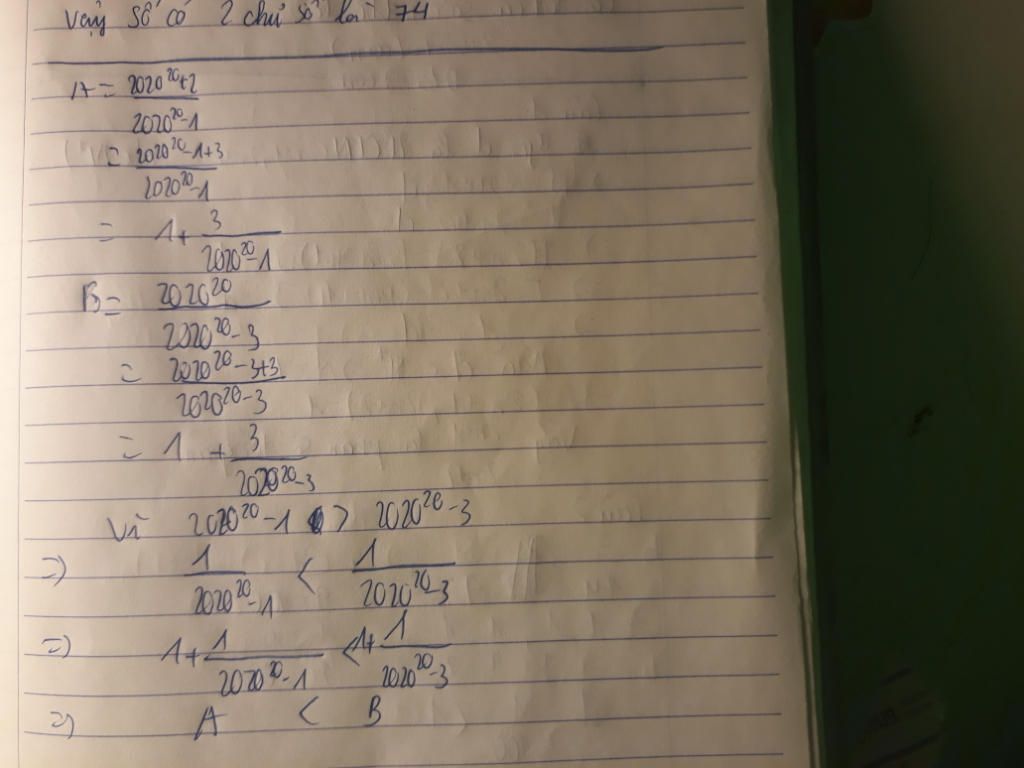 Vậy số có 2 chữ số là 74
A = 2020^20+2 / 2020^20-1
= 2020^20-1+3 / 2020^20-1
= 1+ 3 / 2020^20-1
B = 2020^20 / 2020^20-3
= 2020^20-3+3 / 2020^20-3
= 1 + 3 / 2020^20-3
Vì 2020^20-1 > 2020^20-3
=> 1 / 2020^20-1 < 1 / 2020^20-3
=> 1+ 1 / 2020^20-1 < 1+ 1 / 2020^20-3
=> A < B